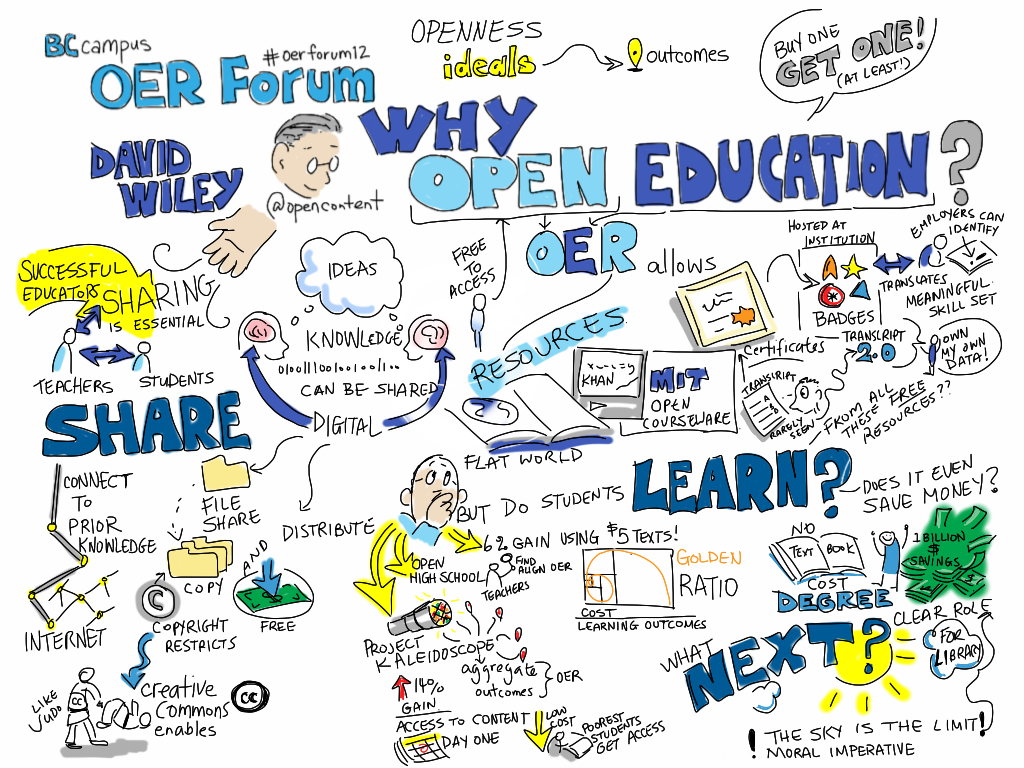 BCcampus
#oerforum12
OER Forum
OPENNESS
ideals
outcomes
BUY ONE
GET ONE!
(AT LEAST!)
DAVID
WILEY
@opencontent
WHY
OPEN EDUCATION?
SUCCESSFUL
EDUCATORS
SHARING
IS ESSENTIAL
TEACHERS
STUDENTS
IDEAS
KNOWLEDGE
CAN BE SHARED
DIGITAL
FREE
TO
ACCESS
OER
allows
RESOURCES
KHAN
MIT
OPEN
COURSEWARE
FLAT WORLD
Certificates
HOSTED AT
INSTITUTION
BADGES
EMPLOYERS CAN
IDENTIFY
TRANSLATES
MEANINGFUL
SKILL SET
TRANSCRIPT
2.0
OWN
MY OWN
DATA!
TRANSCRIPT
A
B
A
RARELY
SEEN
FROM ALL
THESE FREE
RESOURCES??
SHARE
CONNECT
TO
PRIOR
KNOWLEDGE
INTERNET
FILE
SHARE
COPY
DISTRIBUTE
AND
FREE
©
COPYRIGHT
RESTRICTS
LIKE
JUDO
CC
creative
commons
enables
CC
BUT DO STUDENTS
LEARN?
DOES IT EVEN
SAVE MONEY?
6% GAIN USING $5 TEXTS!
OPEN
HIGH SCHOOL
FIND
ALIGN OER
TEACHERS
GOLDEN
RATIO
COST
LEARNING OUTCOMES
PROJECT
KALEIDOSCOPE
aggregate
outcomes
OER
14%
GAIN
ACCESS TO CONTENT
DAY ONE
LOW
COST
POOREST
STUDENTS
GET ACCESS
NO
TEXT BOOK
COST
DEGREE
1 BILLION
$
SAVINGS
CLEAR ROLE
FOR
LIBRARY
WHAT
NEXT?
! THE SKY IS THE LIMIT!
MORAL IMPERATIVE